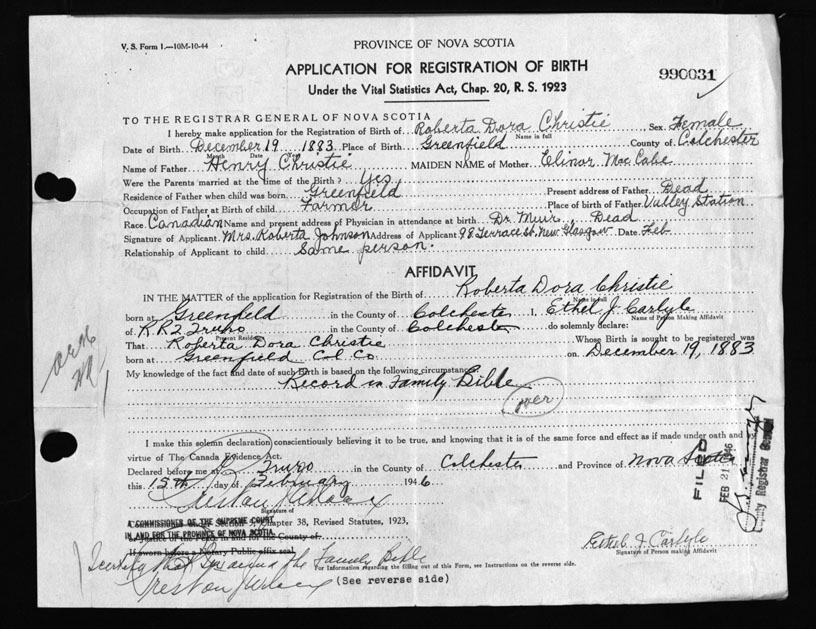 V. S. Form 1.—10M-10-44
PROVINCE OF NOVA SCOTIA
APPLICATION FOR REGISTRATION OF BIRTH
990031
Under the Vital Statistics Act, Chap. 20, R. S. 1923
TO THE REGISTRAR GENERAL OF NOVA SCOTIA
I hereby make application for the Registration of Birth of Roberta Dora Christie Sex Female
Name in full
Date of Birth December 19 1883 Place of Birth Greenfield County of Colchester
Month Date
Name of Father Henry Christie MAIDEN NAME of Mother Elinor Mac Cabe
Were the Parents married at the time of the Birth? Yes
Residence of Father when child was born Greenfield Present address of Father Dead
Occupation of Father at Birth of child Farmer Place of birth of Father Valley Station
Race Canadian Name and present address of Physician in attendance at birth Dr. Muir, Dead
Signature of Applicant Mrs. Roberta Johnson Address of Applicant 98 Terrace St. New Glasgow Date Feb
Relationship of Applicant to child Same person.
AFFIDAVIT
IN THE MATTER of the application for Registration of the Birth of Roberta Dora Christie
Name in full
born at Greenfield in the County of Colchester I, Ethel J. Carlyle
Name of Person Making Affidavit
of R R 2 Truro in the County of Colchester do solemnly declare:
Present Residence
That Roberta Dora Christie Whose Birth is sought to be registered was
born at Greenfield Col. Co. on December 19, 1883
My knowledge of the fact and date of such Birth is based on the following circumstances
Record in Family Bible
over
I make this solemn declaration conscientiously believing it to be true, and knowing that it is of the same force and effect as if made under oath and
virtue of The Canada Evidence Act.
Declared before me at Truro in the County of Colchester and Province of Nova Scotia
this 15th day of February 1946
FILED
FEB 21 1946
Deputy Registrar General
Signature of
A COMMISSIONER OF THE SUPREME COURT
Section 3, Chapter 38, Revised Statutes, 1923,
IN AND FOR THE PROVINCE OF NOVA SCOTIA
or Justice of the Peace in and for the County of
If sworn before a Notary Public affix seal
Ethel J. Carlyle
Signature of Person making Affidavit
I certify that I the Family Bible
For Information regarding the filling out of this Form, see Instructions on the reverse side.
(See reverse side)